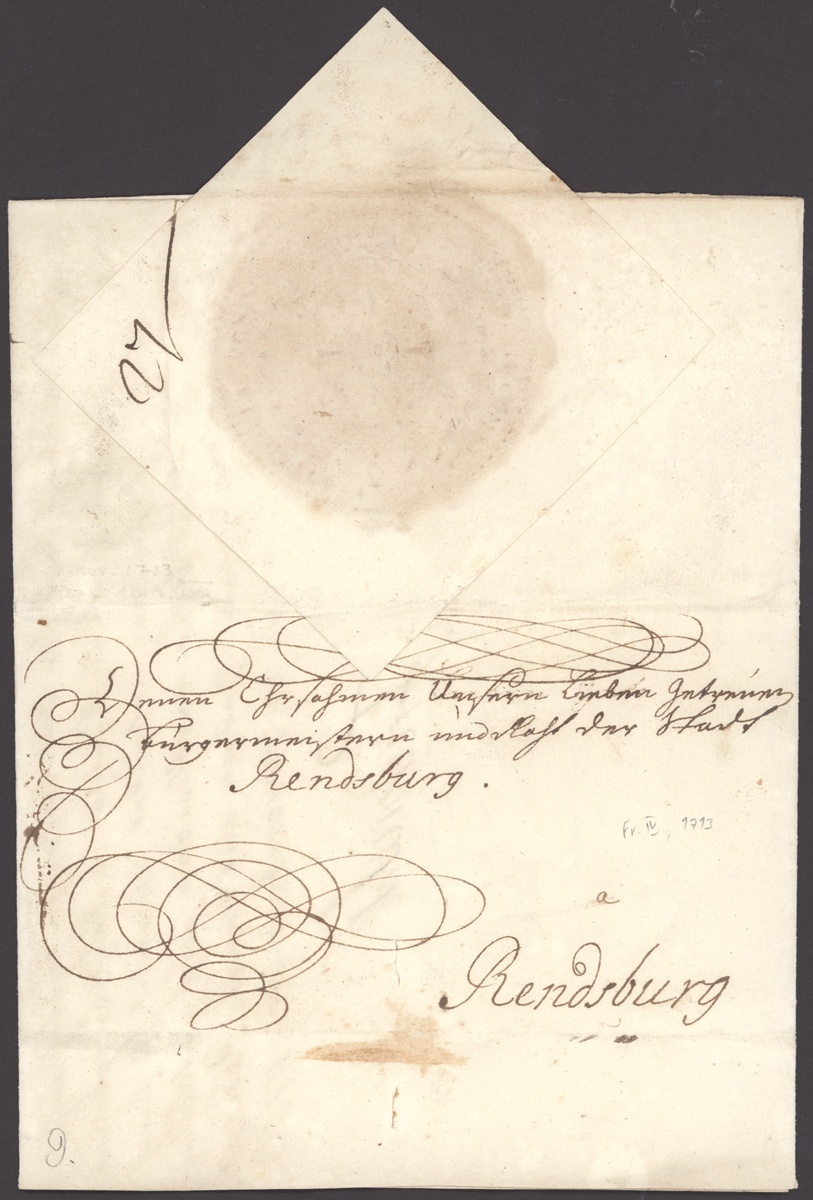 27
Denen Ehrsahmen Unsern Lieben Getreuen
Bürgermeistern und Raht der Stadt
Rendsburg.
Fr. IV, 1713
a
Rendsburg
9.